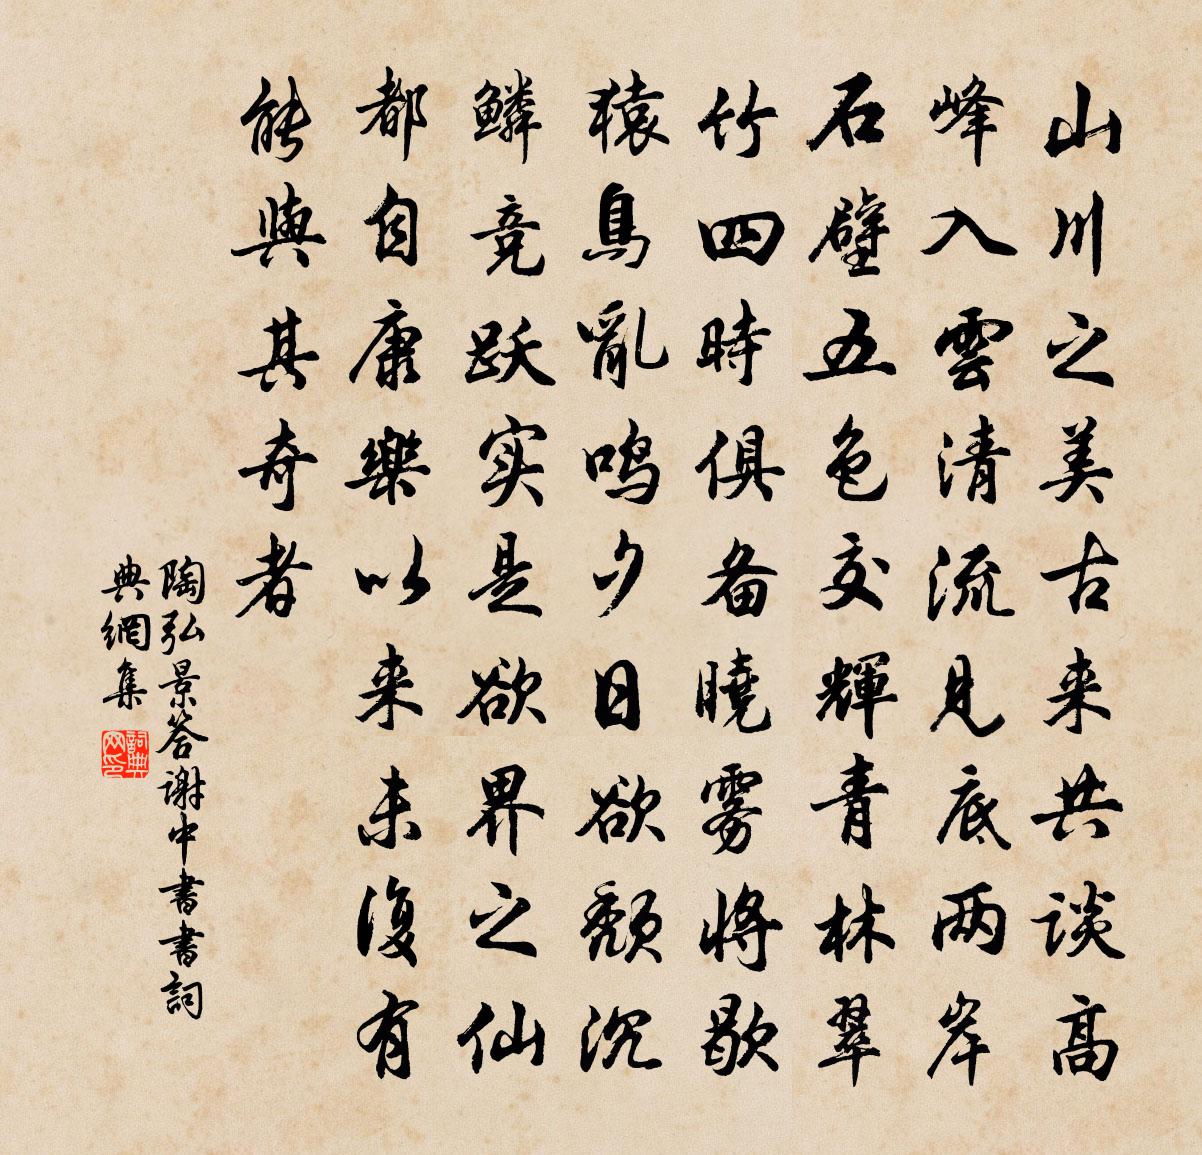 山川之美古来共談高
峰入雲清流見底兩岸
石壁五色交輝青林翠
竹四時俱备曉雾將歇
猿鳥亂鸣夕日欲颓沉
鳞竞跃实是欲界之仙
都自康樂以来未復有
能與其奇者
陶弘景答谢中書書詞
典網集
詞典网印